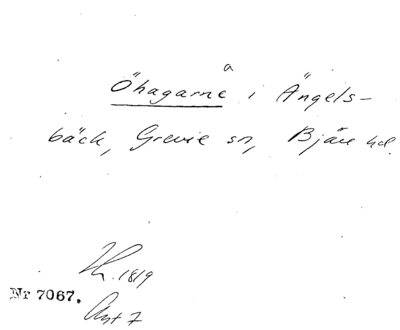 a
Öhagarne i Ängels-
bäck, Grevie sn, Bjäre hd.
Lh. 1819
Nr 7067.
Akt 7